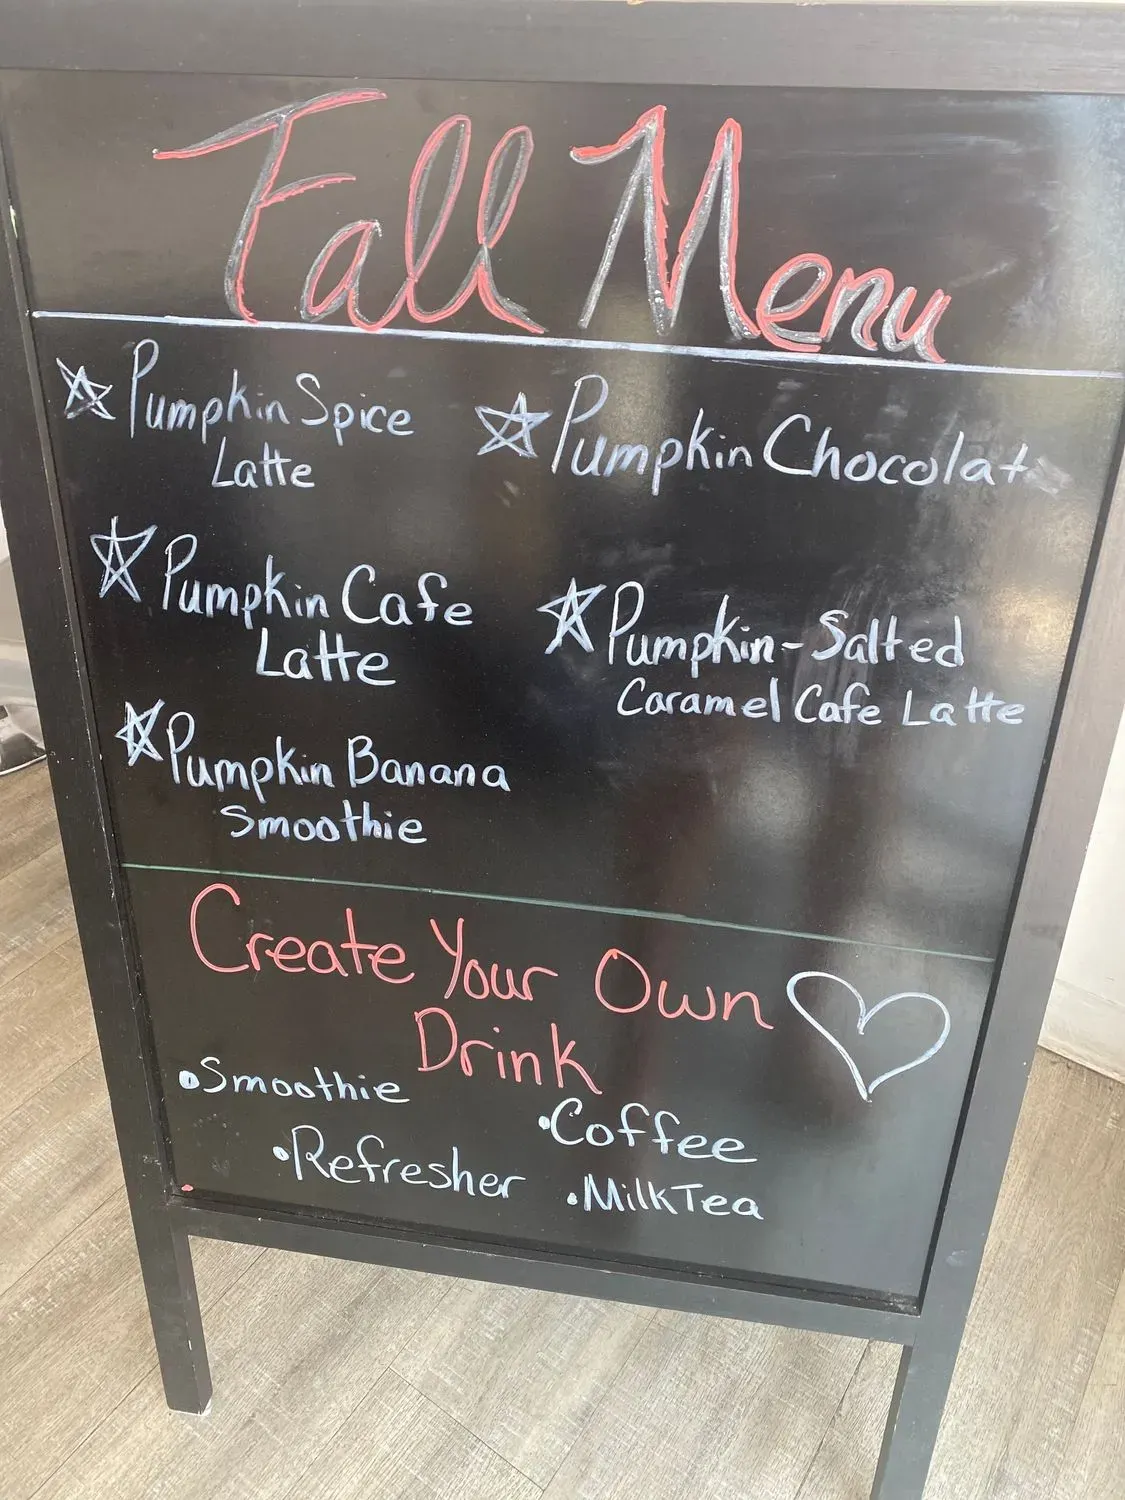 Fall Menu
Pumpkin Spice
Latte
Pumpkin Chocolat
Pumpkin Cafe
Latte
Pumpkin-Salted
Caramel Cafe Latte
Pumpkin Banana
Smoothie
Create Your Own
Drink
•Smoothie
•Coffee
•Refresher
•Milk Tea